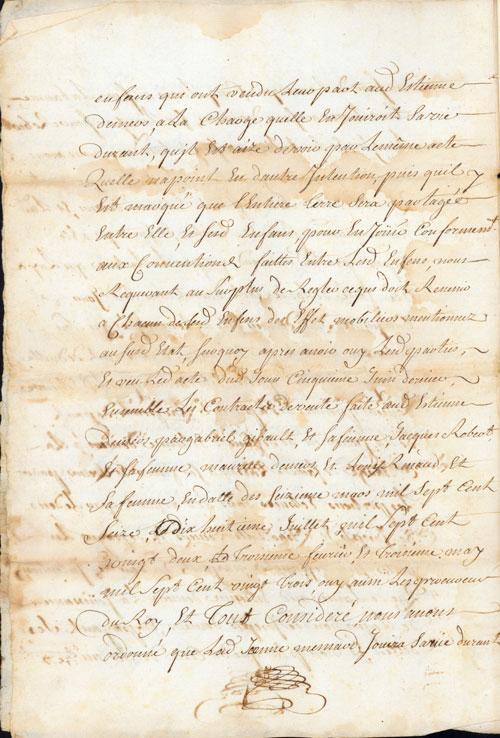 enfans qui ont vendu leur part aud Estienne
demers, a La Charge quelle En Jouiroit sa vie
durant, quil Est aisé de voir par Le même acte
quelle na point Eu dautre Intention, puis quil y
Est marqué que L'Entiere terre sera partagée
Entre Elle, & sesd Enfans pour En Jouir Conformemt
aux Conventions faittes Entre Lesd Enfens, nous
Requerant au surplus de Regler ce qui doit Revenir
a Chacun desd Enfens des Effets mobiliers mentionnez
aussd Etat, surquoy apres avoir ouy Lesd parties,
Et veu Led acte dud Jour Cinquieme Juin dernier,
Ensemble Les Contracts de vente faite aud Estienne
demers par gabriel girault Et sa femme Jacques Robert
Et sa femme, maurille demers Et Louis Renaud, Et
sa femme En datte des seizieme mars mil sept Cent
seize, dix huitieme Juillet, mil sept Cent
vingt deux, troisieme fevrier Et troisieme may
mil sept Cent vingt trois ouy aussi Le procureur
du Roy, Et Tout Consideré, nous avons
ordonné que Lad Jeanne menard Jouira sa vie durant